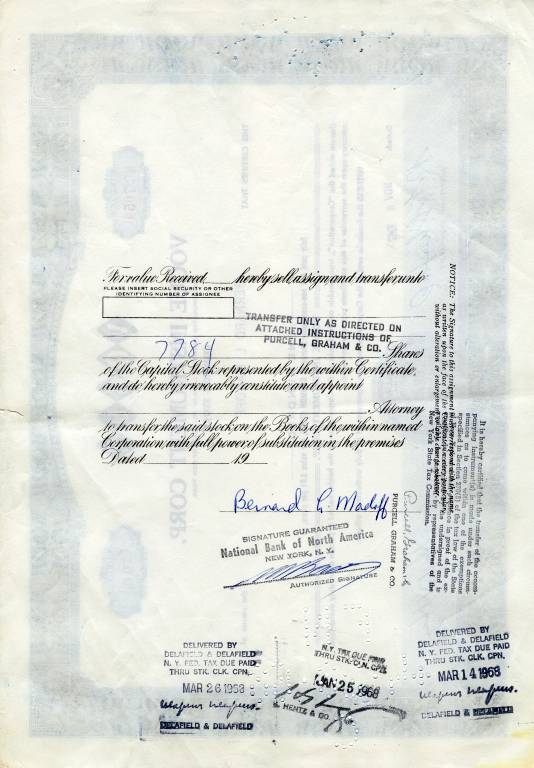 For value Received, hereby sell, assign and transfer unto
PLEASE INSERT SOCIAL SECURITY OR OTHER
IDENTIFYING NUMBER OF ASSIGNEE
TRANSFER ONLY AS DIRECTED ON
ATTACHED INSTRUCTIONS OF
PURCELL, GRAHAM & CO.
7784 Shares
of the Capital Stock represented by the within Certificate,
and do hereby irrevocably constitute and appoint
Attorney
to transfer the said stock on the Books of the within named
Corporation, with full power of substitution in the premises
Dated 19
Bernard L Madoff
SIGNATURE GUARANTEED
National Bank of North America
NEW YORK, N. Y.
AUTHORIZED SIGNATURE
NOTICE: The Signature to this assignment
as written upon the face of the
without alteration or enlargement
It is hereby certified that the transfer of the accom-
panying instrument(s) is made under such circum-
stances as to come within one of the exemptions
specified in Section 270(5) of the tax law of the State
New York State Tax Commission.
Purcell Graham & Co
PURCELL GRAHAM & CO
DELIVERED BY
DELAFIELD & DELAFIELD
N. Y. FED. TAX DUE PAID
THRU STK. CLK. CPN.
MAR 26 1968
DELAFIELD & DELAFIELD
N.Y. TAX DUE PAID
THRU STK. CPN.
JAN 25 1968
HENTZ & CO.
DELIVERED BY
DELAFIELD & DELAFIELD
N. Y. FED. TAX DUE PAID
THRU STK. CLK. CPN.
MAR 14 1968
DELAFIELD & DELAFIELD